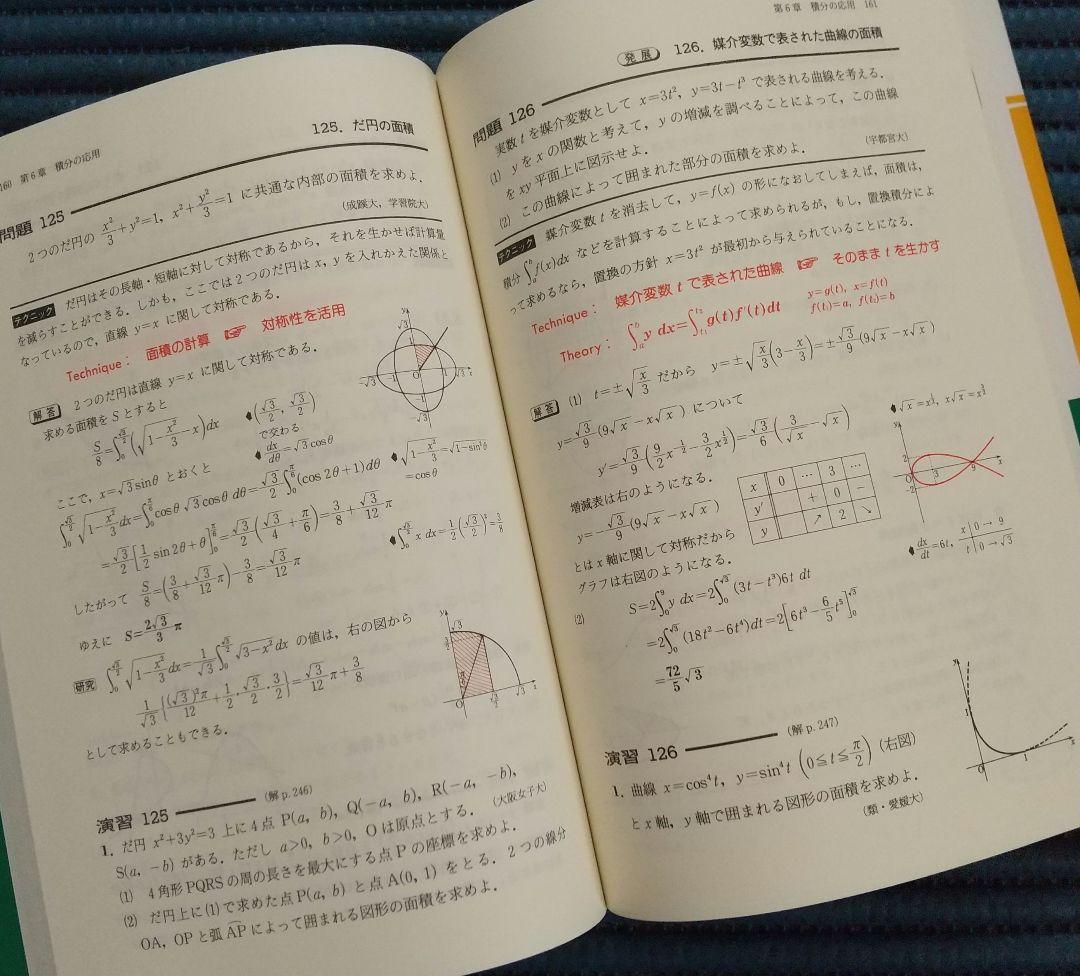 160 第6章 積分の応用
125. だ円の面積
問題 125
2つのだ円の x²/3+y²=1, x²+y²/3=1 に共通な内部の面積を求めよ.
(成蹊大, 学習院大)
テクニック だ円はその長軸・短軸に対して対称であるから, それを生かせば計算量
を減らすことができる. しかも, ここでは2つのだ円は x, y を入れかえた関係と
なっているので, 直線 y=x に関して対称である.
Technique: 面積の計算 ☞ 対称性を活用
解答 2つのだ円は直線 y=x に関して対称である.
求める面積を S とすると
S/8=∫₀^{√3/2}(√(1-x²/3)-x)dx
(√3/2, √3/2)
で交わる
ここで, x=√3sinθ とおくと
dx/dθ=√3cosθ
∫₀^{√3/2}√(1-x²/3)dx=∫₀^{π/6}cosθ√3cosθ dθ=√3/2∫₀^{π/6}(cos2θ+1)dθ
√(1-x²/3)=√(1-sin²θ)
=cosθ
=√3/2[1/2 sin2θ+θ]₀^{π/6}=√3/2(√3/4+π/6)=3/8+√3/12 π
∫₀^{√3/2}x dx=1/2(√3/2)²=3/8
したがって S/8=(3/8+√3/12 π)-3/8=√3/12 π
ゆえに S=2√3/3 π
研究 ∫₀^{√3/2}√(1-x²/3)dx=1/√3∫₀^{√3/2}√(3-x²)dx の値は, 右の図から
1/√3{(√3)²π/12+1/2・√3/2・3/2}=√3/12 π+3/8
として求めることもできる.
演習 125
(解 p.246)
1. だ円 x²+3y²=3 上に4点 P(a, b), Q(-a, b), R(-a, -b),
S(a, -b) がある. ただし a>0, b>0, O は原点とする.
(大阪女子大)
(1) 4角形PQRSの周の長さを最大にする点Pの座標を求めよ.
(2) だ円上に(1)で求めた点P(a, b) と点 A(0, 1) をとる. 2つの線分
OA, OP と弧 AP によって囲まれる図形の面積を求めよ.
第6章 積分の応用 161
発展 126. 媒介変数で表された曲線の面積
問題 126
実数 t を媒介変数として x=3t², y=3t-t³ で表される曲線を考える.
(1) y を x の関数と考えて, y の増減を調べることによって, この曲線
を xy 平面上に図示せよ.
(2) この曲線によって囲まれた部分の面積を求めよ.
(宇都宮大)
テクニック 媒介変数 t を消去して, y=f(x) の形になおしてしまえば, 面積は,
積分∫ₐᵇf(x)dx などを計算することによって求められるが, もし, 置換積分によ
って求めるなら, 置換の方針 x=3t² が最初から与えられていることになる.
Technique: 媒介変数 t で表された曲線 ☞ そのまま t を生かす
Theory: ∫ₐᵇy dx=∫_{t₁}^{t₂}g(t)f'(t)dt
y=g(t), x=f(t)
f(t₁)=a, f(t₂)=b
解答 (1) t=±√(x/3) だから y=±√(x/3)(3-x/3)=±√3/9(9√x-x√x)
y=√3/9(9√x-x√x) について
√x=x^{1/2}, x√x=x^{3/2}
y'=√3/9(9/2 x^{-1/2}-3/2 x^{1/2})=√3/6(3/√x-√x)
増減表は右のようになる.
x 0 … 3 …
y' + 0 −
y ↗ 2 ↘
y=-√3/9(9√x-x√x)
とは x 軸に関して対称だから
グラフは右図のようになる.
dx/dt=6t, x 0→9
t 0→√3
(2) S=2∫₀⁹y dx=2∫₀^{√3}(3t-t³)6t dt
=2∫₀^{√3}(18t²-6t⁴)dt=2[6t³-6/5 t⁵]₀^{√3}
=72/5 √3
演習 126
(解 p.247)
1. 曲線 x=cos⁴t, y=sin⁴t (0≦t≦π/2) (右図)
と x 軸, y 軸で囲まれる図形の面積を求めよ.
(類・愛媛大)